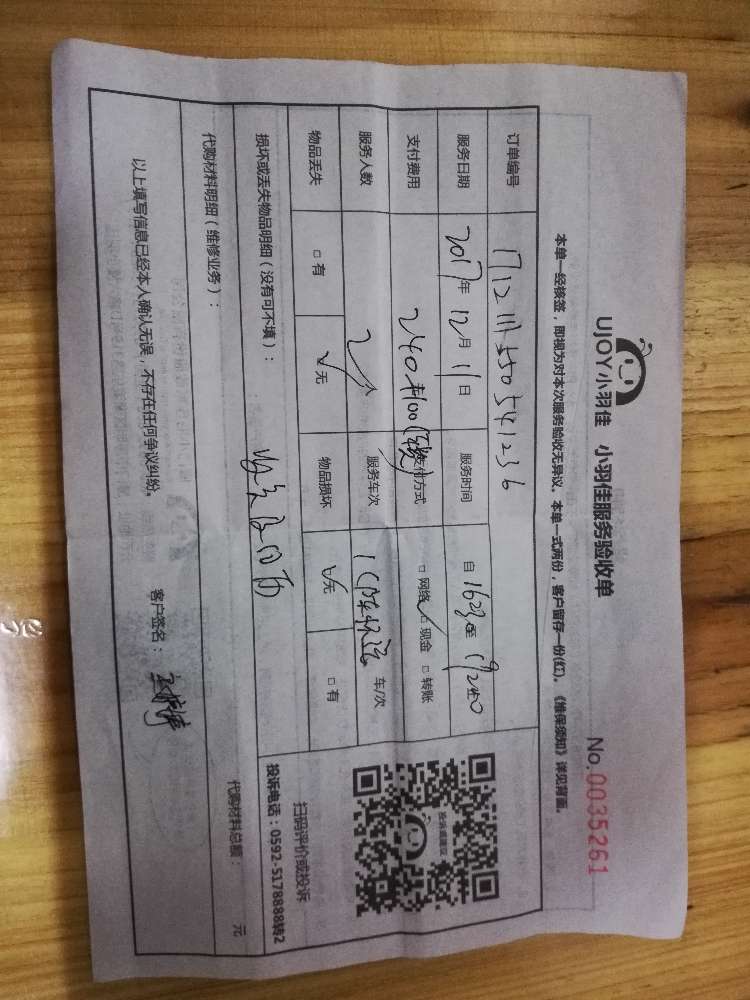 UJOY小羽佳 小羽佳服务验收单
No.0035261
本单一经核签，即视为对本次服务验收无异议。本单一式两份，客户留存一份(红)。《维保须知》详见背面。
订单编号 171211155054 1236
服务日期 2017年12月11日 服务时间 自1623至19240
支付费用 240 100 支付方式 □网络 ☑现金 □转账
服务人数 2人 服务车次 1 车/次
物品丢失 □有 ☑无 物品损坏 ☑无 □有
损坏或丢失物品明细（没有可不填）：
代购材料明细（维修业务）：
代购材料总额： 元
以上填写信息已经本人确认无误，不存在任何争议纠纷。
客户签名：
投诉或建议
扫码评价或投诉
投诉电话：0592-5178888转2